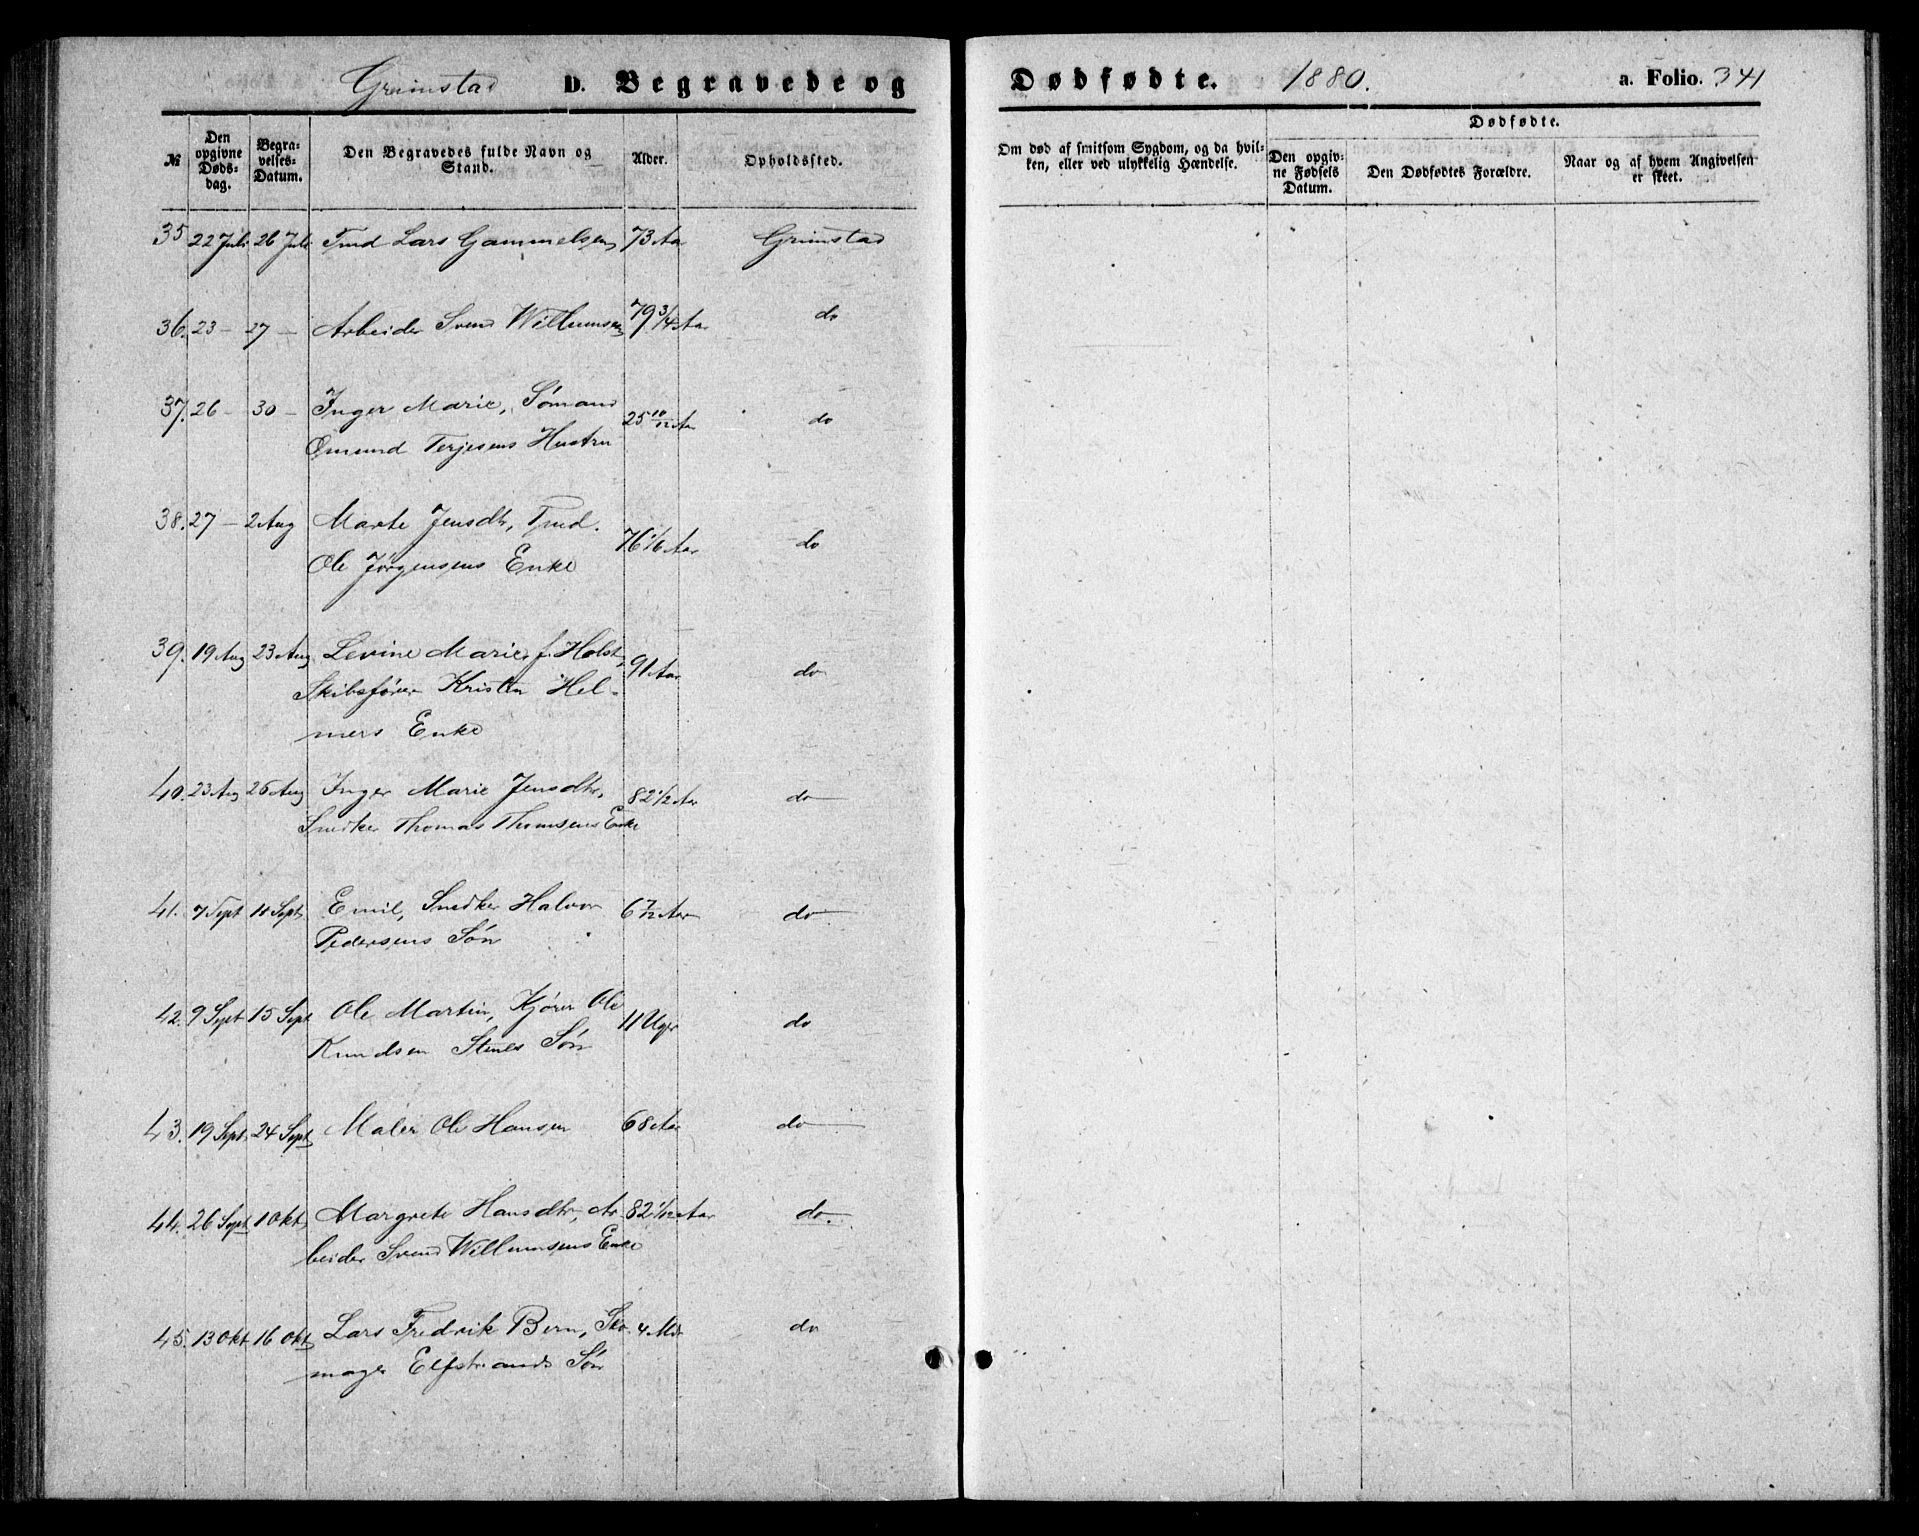 Grimstad D. Begravede og Dødfødte. 1880. a. Folio. 341
№
Den opgivne Dødsdag.
Begravelses-Datum.
Den Begravedes fulde Navn og Stand.
Alder.
Opholdssted.
Om død af smitsom Sygdom, og da hvilken, eller ved ulykkelig Hændelse.
Dødfødte.
Den opgivne Fødsels Datum.
Den Dødfødtes Forældre.
Naar og af hvem Angivelsen er skeet.
35 22 Juli 26 Juli Tmd Lars Gammelsen 73 Aar Grimstad
36. 23 – 27 – Arbeider Svend Willumsen 79 3/4 Aar do
37. 26 – 30 – Inger Marie, Sømand 25 10/12 Aar do
Ømund Terjesens Hustru
38. 27 – 2 Aug Marte Jensdtr, Tmd. 76 1/6 Aar do
Ole Jørgensens Enke
39. 19 Aug 23 Aug Levine Marie f. Holst, 91 Aar do
Skibsfører Kristen Hel-
mers Enke
40. 23 Aug 26 Aug Inger Marie Jensdtr, 82 1/2 Aar do
Snedker Thomas Thomsens Enke
41. 7 Sept 11 Sept Emil, Snedker Halvor 6 7/12 Aar do
Pedersens Søn
42. 9 Sept 15 Sept Ole Martin, Kjører Ole 11 Uger do
Knudsen Stenes Søn
43. 19 Sept. 24 Sept Maler Ole Hansen 68 Aar do
44. 26 Sept 1 Okt Margrete Hansdtr, Ar- 82 1/12 Aar do.
beider Svend Willumsens Enke
45. 13 Okt 16 Okt Lars Fredrik Bern, Sko- 4 Mdr do
mager Elfstrands Søn